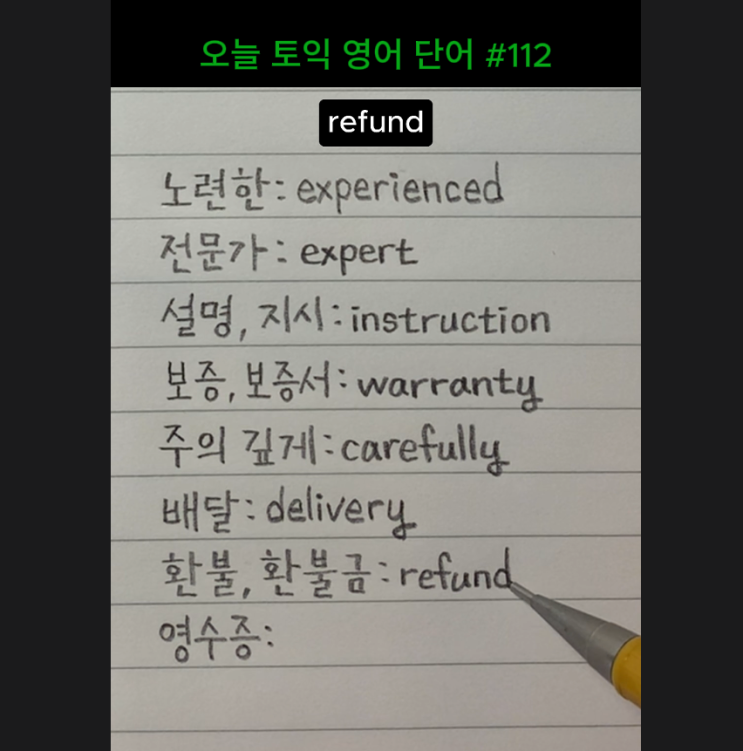 오늘 토익 영어 단어 #112
refund
노련한: experienced
전문가: expert
설명, 지시: instruction
보증, 보증서: warranty
주의 깊게: carefully
배달: delivery
환불, 환불금: refund
영수증: